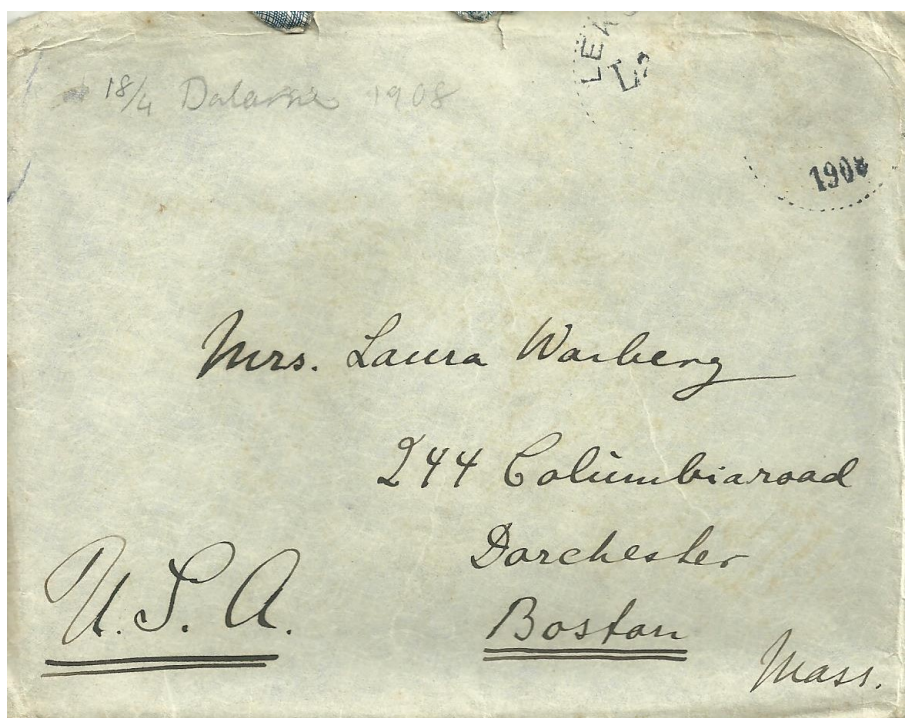 18/4 Dalarne 1908
LEK
1908
Mrs. Laura Warberg
244 Columbiaroad
Dorchester
Boston
Mass.
U.S.A.